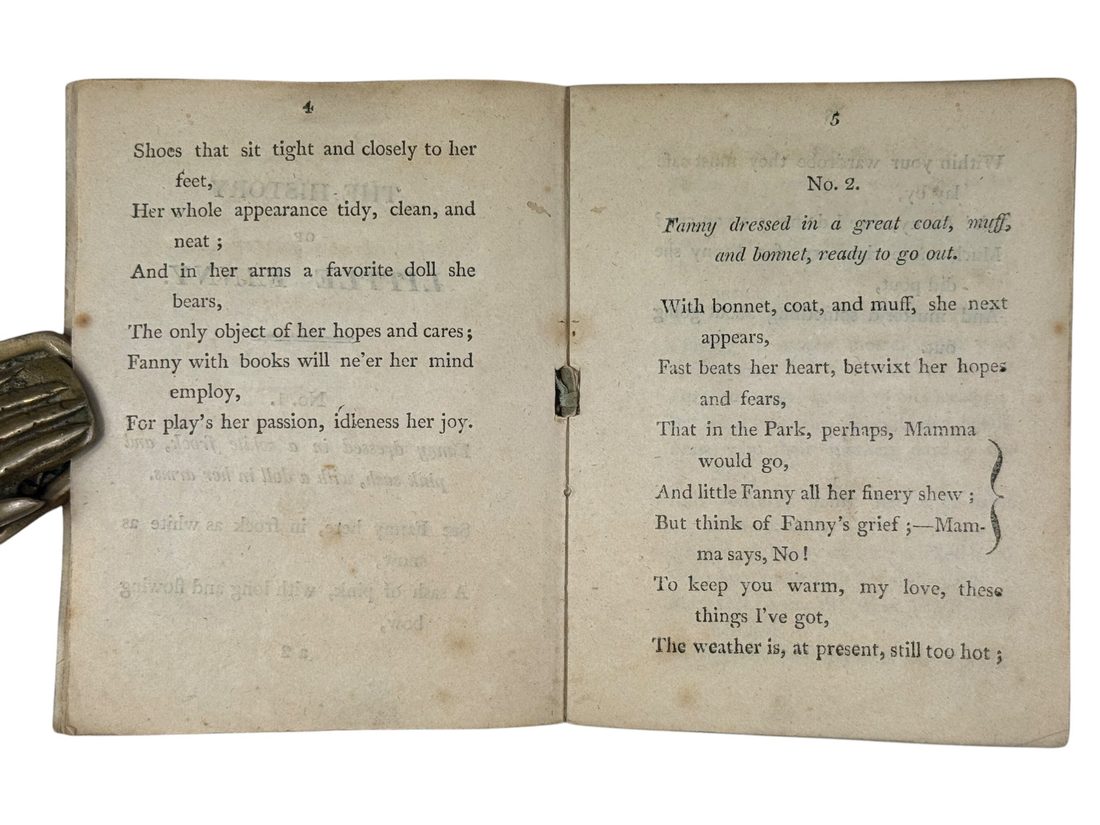 4
Shoes that sit tight and closely to her
feet,
Her whole appearance tidy, clean, and
neat ;
And in her arms a favorite doll she
bears,
The only object of her hopes and cares;
Fanny with books will ne'er her mind
employ,
For play's her passion, idleness her joy.
5
No. 2.
Fanny dressed in a great coat, muff,
and bonnet, ready to go out.
With bonnet, coat, and muff, she next
appears,
Fast beats her heart, betwixt her hopes
and fears,
That in the Park, perhaps, Mamma
would go,
And little Fanny all her finery shew ;
But think of Fanny's grief ;—Mam-
ma says, No !
To keep you warm, my love, these
things I've got,
The weather is, at present, still too hot ;